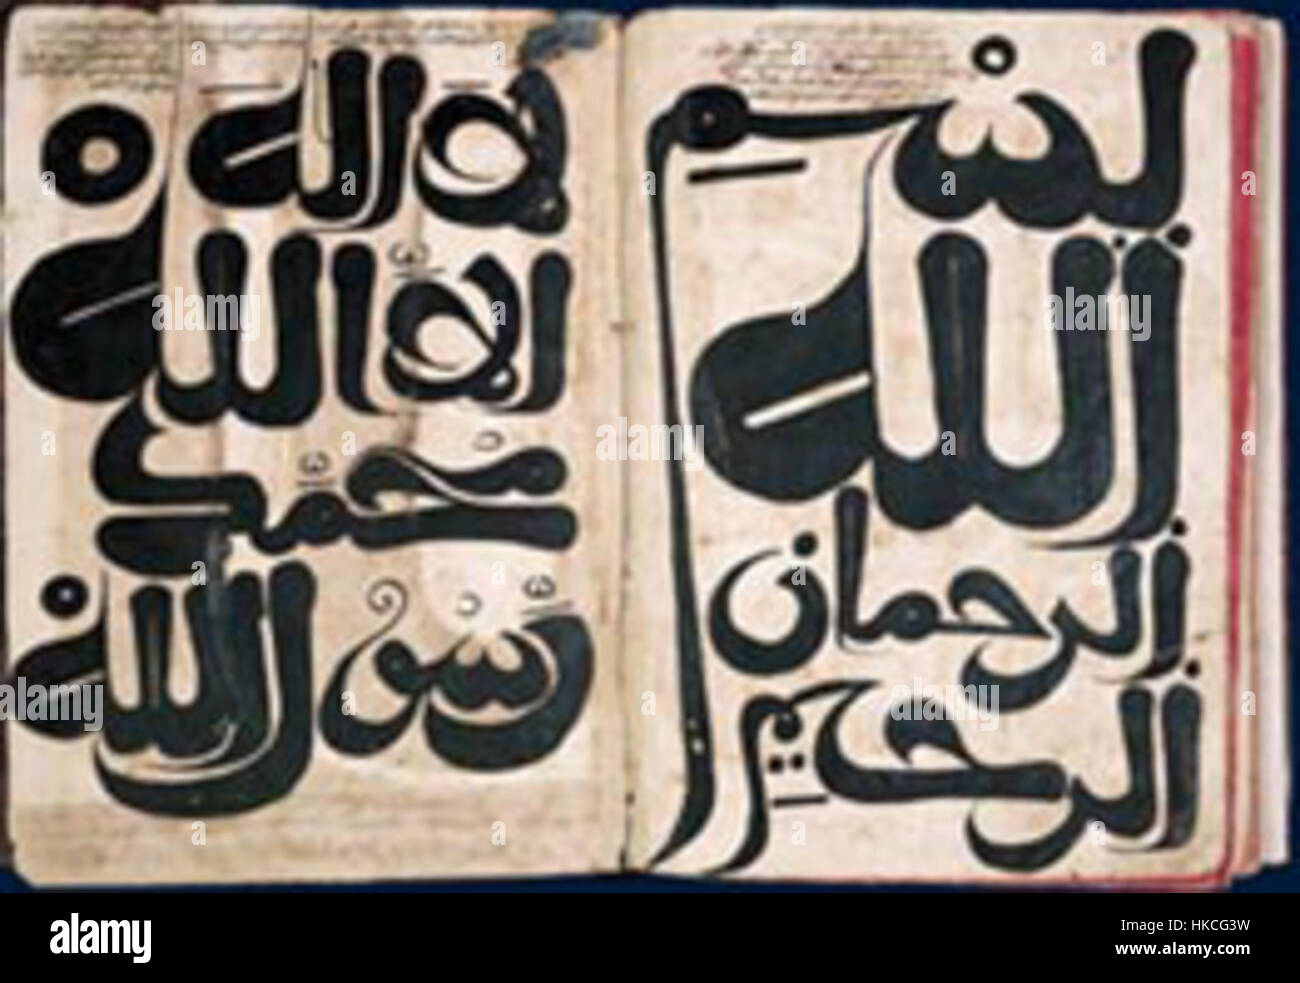 بسم
الله
الرحمان
الرحيم
لا اله
الا الله
محمد
رسول الله
alamy
Image ID: HKCG3W
www.alamy.com